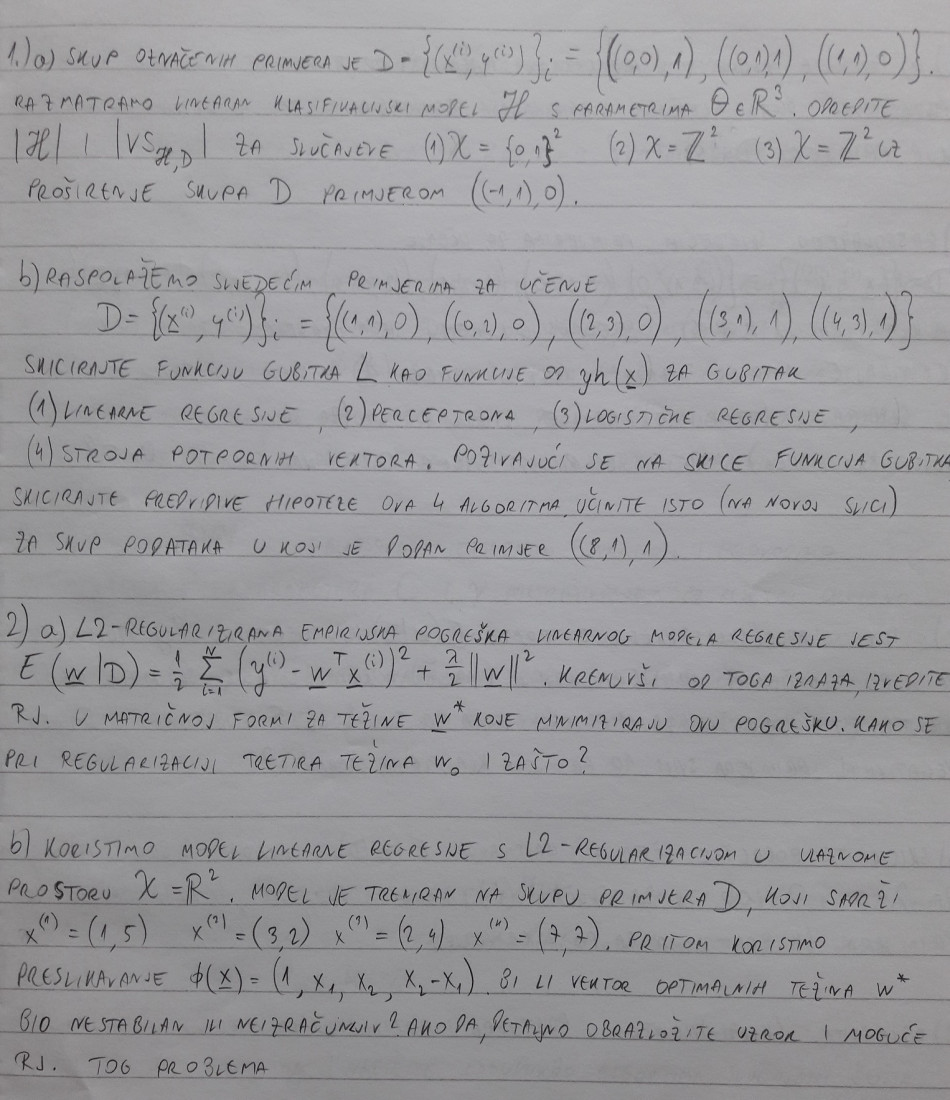 1.) a) SKUP OZNAČENIH PRIMJERA JE D = {(x^(i), y^(i))}_i = {((0,0),1), ((0,1),1), ((1,1),0)}.
RAZMATRAMO LINEARAN KLASIFIKACIJSKI MODEL H S PARAMETRIMA θ∈ℝ³. ODREDITE
|H| I |VS_H,D| ZA SLUČAJEVE (1) X = {0,1}² (2) X = ℤ² (3) X = ℤ² UZ
PROŠIRENJE SKUPA D PRIMJEROM ((-1,1),0).
b) RASPOLAŽEMO SLJEDEĆIM PRIMJERIMA ZA UČENJE
D = {(x^(i), y^(i))}_i = {((1,1),0), ((0,2),0), ((2,3),0), ((3,1),1), ((4,3),1)}
SKICIRAJTE FUNKCIJU GUBITKA L KAO FUNKCIJE OD yh(x) ZA GUBITAK
(1) LINEARNE REGRESIJE, (2) PERCEPTRONA, (3) LOGISTIČKE REGRESIJE,
(4) STROJA POTPORNIH VEKTORA. POZIVAJUĆI SE NA SKICE FUNKCIJA GUBITKA
SKICIRAJTE PREDVIDIVE HIPOTEZE OVA 4 ALGORITMA. UČINITE ISTO (NA NOVOJ SLICI)
ZA SKUP PODATAKA U KOJI JE DODAN PRIMJER ((8,1),1).
2) a) L2-REGULARIZIRANA EMPIRIJSKA POGREŠKA LINEARNOG MODELA REGRESIJE JEST
E(w|D) = 1/2 Σ_{i=1}^N (y^(i) - w^T x^(i))² + λ/2 ||w||². KRENUVŠI OD TOGA IZRAZA, IZVEDITE
RJ. U MATRIČNOJ FORMI ZA TEŽINE w* KOJE MINIMIZIRAJU OVU POGREŠKU. KAKO SE
PRI REGULARIZACIJI TRETIRA TEŽINA w₀ I ZAŠTO?
b) KORISTIMO MODEL LINEARNE REGRESIJE S L2-REGULARIZACIJOM U ULAZNOME
PROSTORU X = ℝ². MODEL JE TRENIRAN NA SKUPU PRIMJERA D, KOJI SADRŽI
x^(1) = (1,5) x^(2) = (3,2) x^(3) = (2,4) x^(4) = (7,7). PRITOM KORISTIMO
PRESLIKAVANJE φ(x) = (1, x₁, x₂, x₂-x₁). BI LI VEKTOR OPTIMALNIH TEŽINA w*
BIO NESTABILAN ILI NEIZRAČUNLJIV? AKO DA, DETALJNO OBRAZLOŽITE UZROK I MOGUĆE
RJ. TOG PROBLEMA